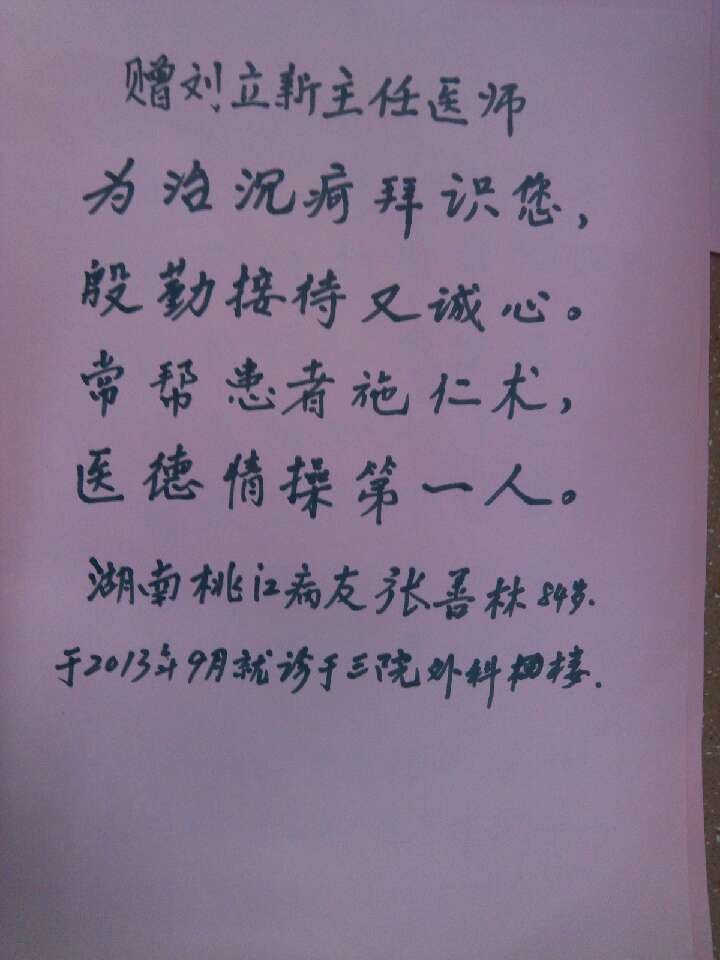 赠刘立新主任医师
为治沉疴拜识您，
殷勤接待又诚心。
常帮患者施仁术，
医德情操第一人。
湖南桃江病友张善林84岁.
于2013年9月就诊于三院外科楼.